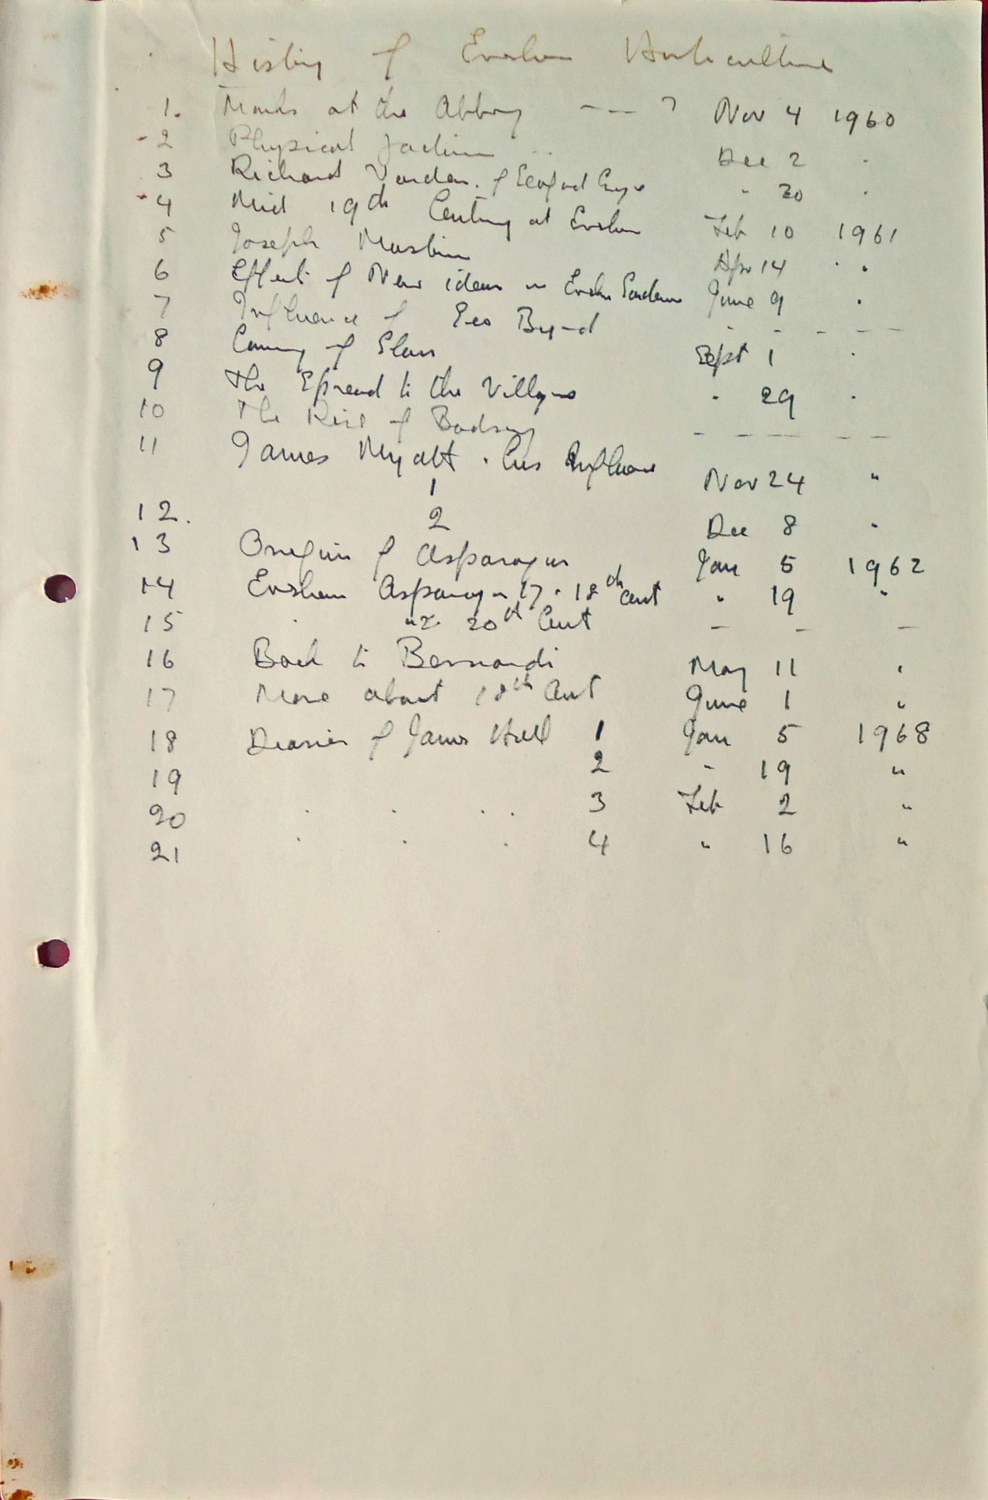 History of Evesham Horticulture
1. Monks at the Abbey - - - ? Nov 4 1960
- 2 Physical Factors Dec 2 "
3 Richard Varden. of Seaford Grge " 30 "
- 4 Mid 19th Century at Evesham Feb 10 1961
5 Joseph Masters Apr 14 " "
6 Effect of New ideas on Evesham Gardens June 9 "
7 Influence of Geo Byrd - - - - -
8 Coming of Plum Sept 1 "
9 The Spread to the Villages " 29 "
10 The Rise of Badsey - - - - -
11 James Myatt . his Influence
1 Nov 24 "
12. 2 Dec 8 "
13 Origin of Asparagus Jan 5 1962
14 Evesham Asparagus 17 . 18th Cent " 19 "
15 " 20th Cent - - -
16 Back to Bernardi May 11 "
17 More about 18th Cent June 1 "
18 Diaries of James Hall 1 Jan 5 1968
19 2 " 19 "
20 " " " 3 Feb 2 "
21 " " " 4 " 16 "